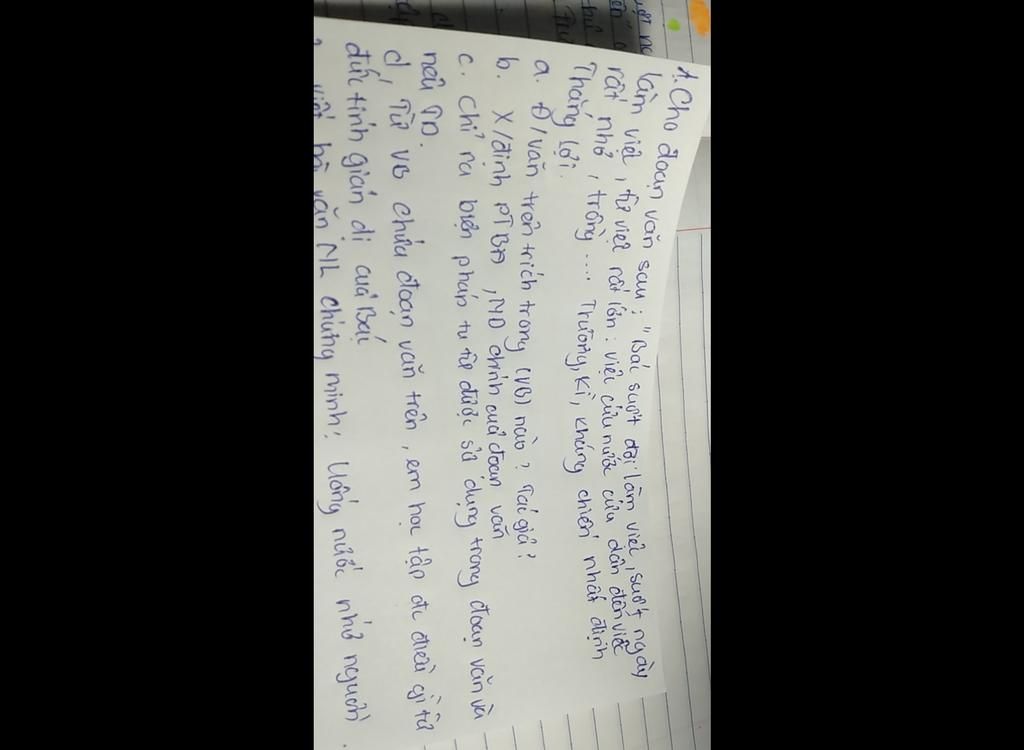 1. Cho đoạn văn sau: "Bác suốt đời làm việc, suốt ngày
làm việc, từ việc rất lớn: việc cứu nước cứu dân đến việc
rất nhỏ, trồng .... Trường, Kì, kháng chiến nhất định
Thắng lợi.
a. Đ/văn trên trích trong (VB) nào? Tác giả?
b. X/định PTBĐ, ND chính của đoạn văn
c. Chỉ ra biện pháp tu từ được sử dụng trong đoạn văn và
nêu TD.
d. Từ VB chứa đoạn văn trên, em học tập đc điều gì từ
đức tính giản dị của Bác
viết bài văn NL chứng minh: Uống nước nhớ nguồn